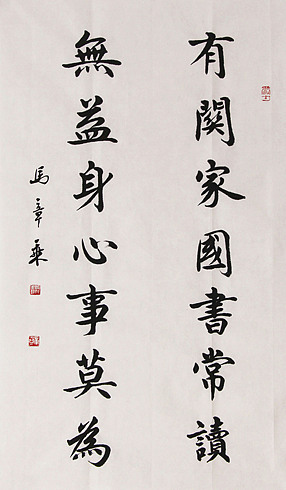 有關家國書常讀
無益身心事莫為
馬章乘